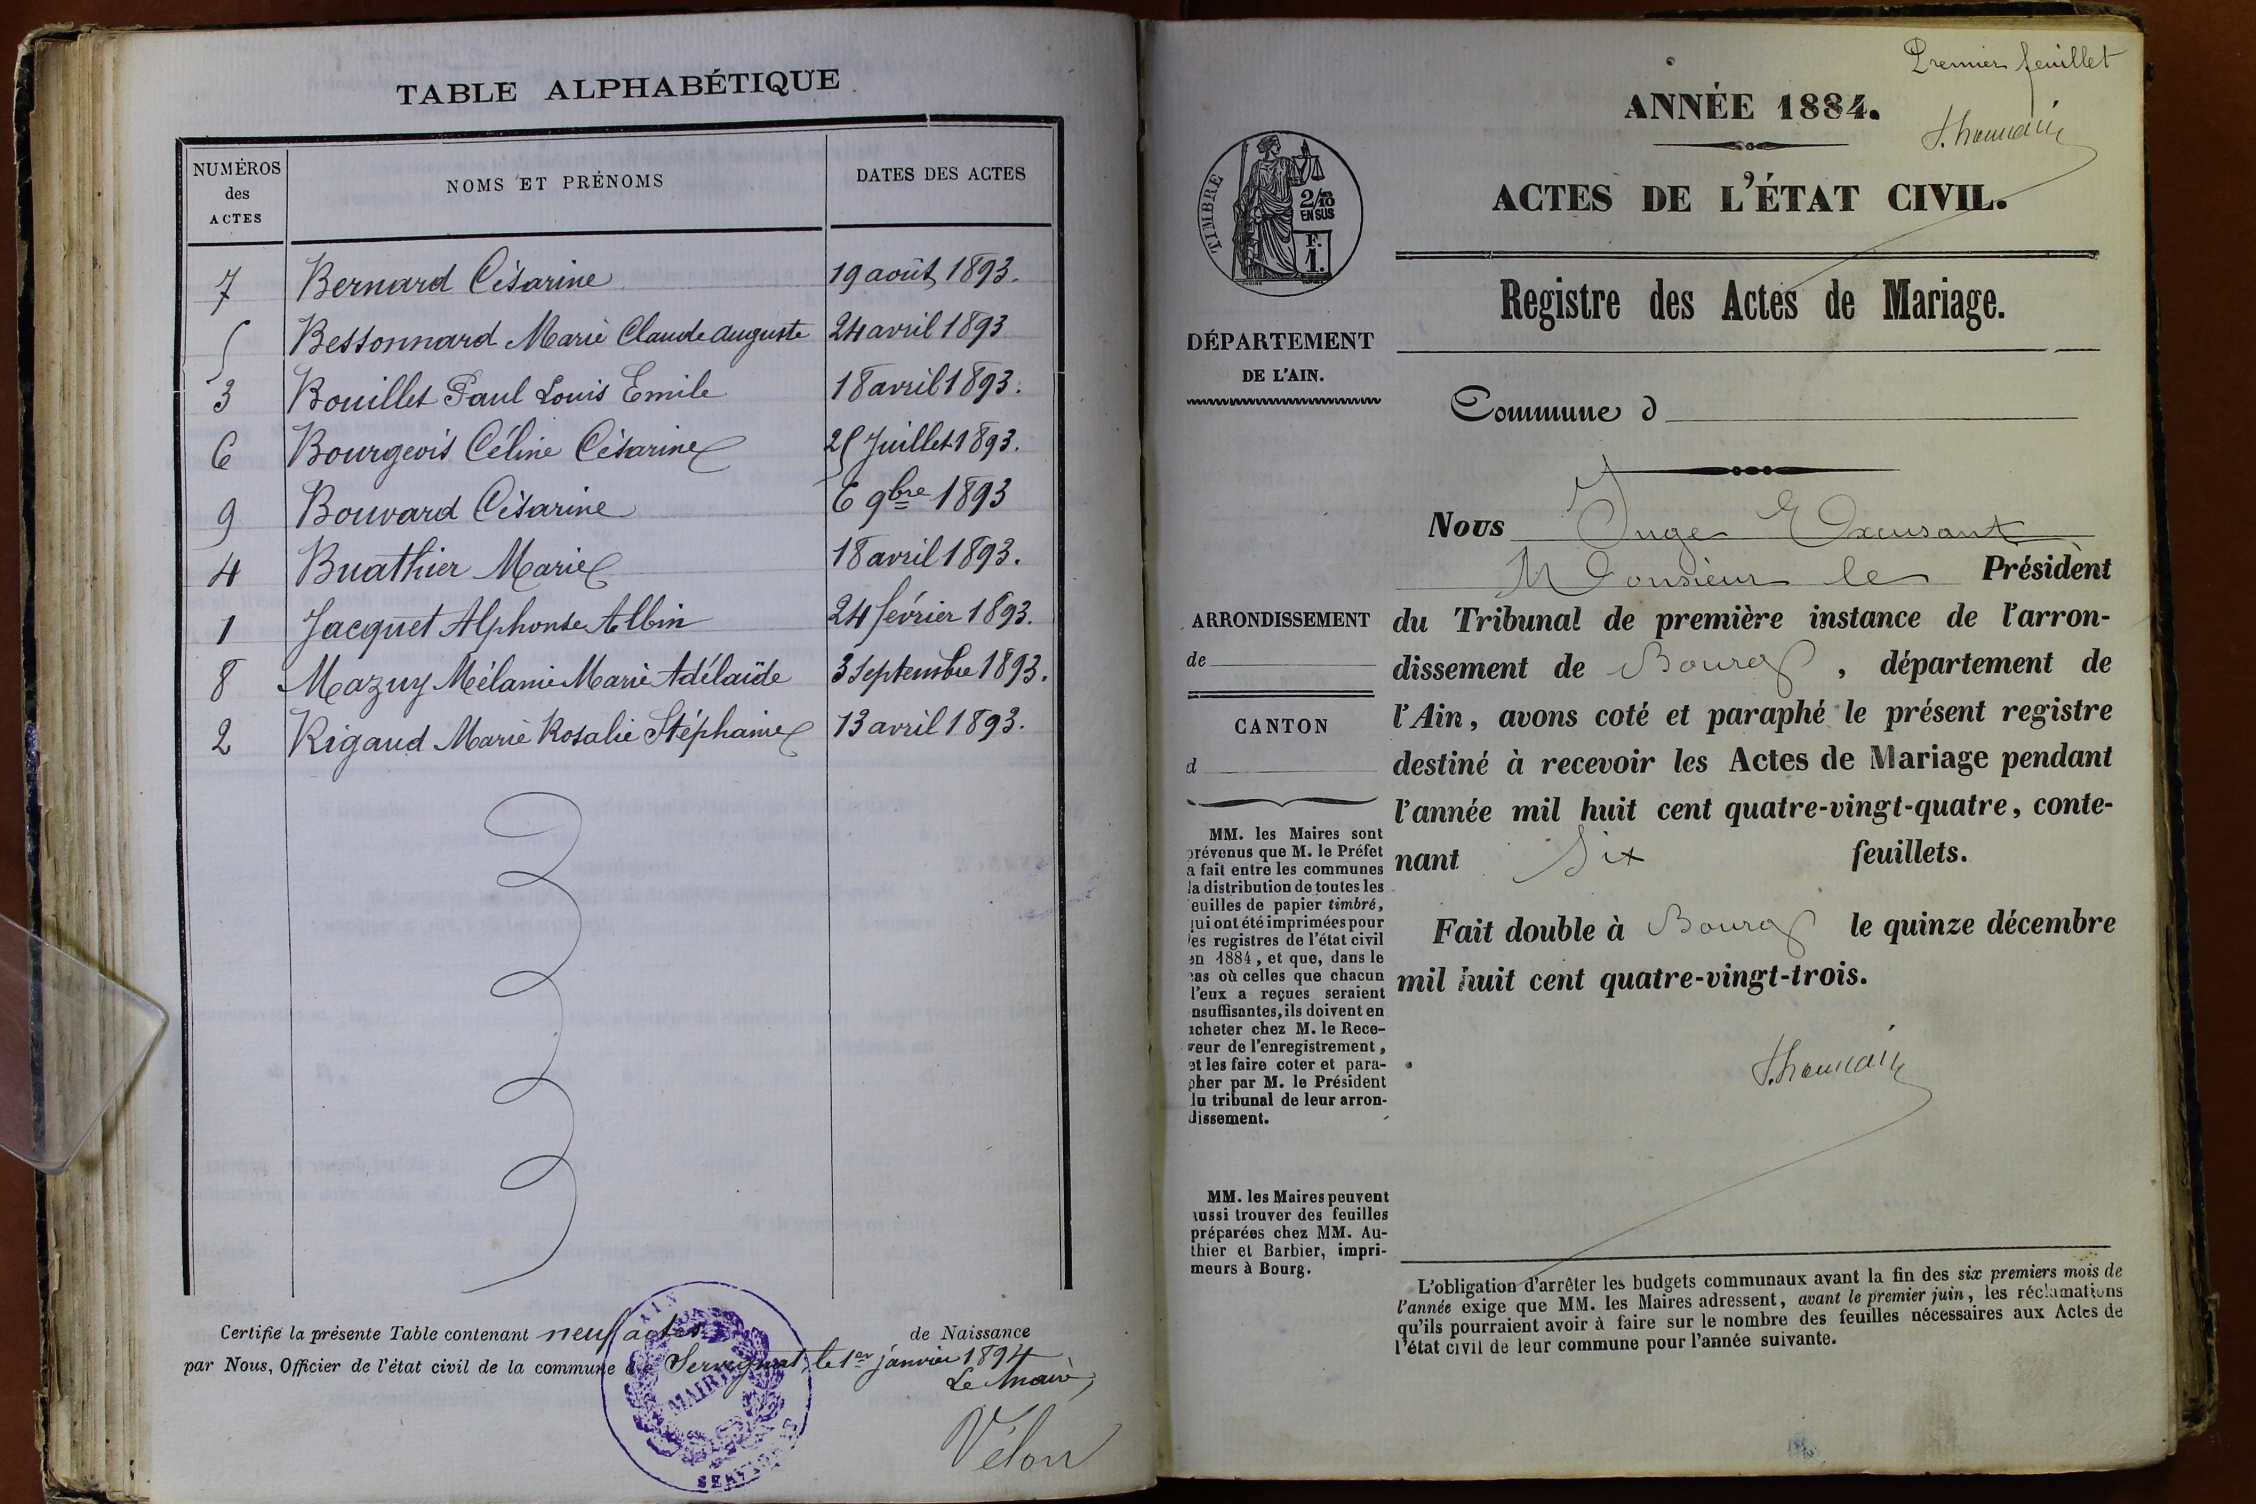 TABLE ALPHABÉTIQUE
NUMÉROS
des
ACTES
NOMS ET PRÉNOMS
DATES DES ACTES
7 Bernard Césarine 19 août 1893.
5 Bessonnard Marie Claude Auguste 24 avril 1893
3 Bouillet Paul Louis Emile 18 avril 1893.
6 Bourgeois Céline Césarine 25 Juillet 1893.
9 Bouvard Césarine 6 9bre 1893
4 Buathier Marie 18 avril 1893.
1 Jacquet Alphonse Albin 24 février 1893.
8 Mazuy Mélanie Marie Adélaïde 3 Septembre 1893.
2 Rigaud Marie Rosalie Stéphanie 13 avril 1893.
Certifié la présente Table contenant neuf actes de Naissance
par Nous, Officier de l'état civil de la commune de Servignat, le 1er janvier 1894
Le Maire,
Vélon
AIN
MAIRIE
Premier feuillet
ANNÉE 1884.
ACTES DE L'ÉTAT CIVIL.
Registre des Actes de Mariage.
Commune d
TIMBRE
2/10
EN SUS
F.
1.
DÉPARTEMENT
DE L'AIN.
ARRONDISSEMENT
de
CANTON
d
MM. les Maires sont
prévenus que M. le Préfet
a fait entre les communes
la distribution de toutes les
feuilles de papier timbré,
qui ont été imprimées pour
les registres de l'état civil
en 1884, et que, dans le
cas où celles que chacun
d'eux a reçues seraient
insuffisantes, ils doivent en
acheter chez M. le Rece-
veur de l'enregistrement,
et les faire coter et para-
pher par M. le Président
du tribunal de leur arron-
dissement.
MM. les Maires peuvent
aussi trouver des feuilles
préparées chez MM. Au-
thier et Barbier, impri-
meurs à Bourg.
Nous Juge Excusant
Monsieur le Président
du Tribunal de première instance de l'arron-
dissement de Bourg, département de
l'Ain, avons coté et paraphé le présent registre
destiné à recevoir les Actes de Mariage pendant
l'année mil huit cent quatre-vingt-quatre, conte-
nant Six feuillets.
Fait double à Bourg le quinze décembre
mil huit cent quatre-vingt-trois.
L'obligation d'arrêter les budgets communaux avant la fin des six premiers mois de
l'année exige que MM. les Maires adressent, avant le premier juin, les réclamations
qu'ils pourraient avoir à faire sur le nombre des feuilles nécessaires aux Actes de
l'état civil de leur commune pour l'année suivante.